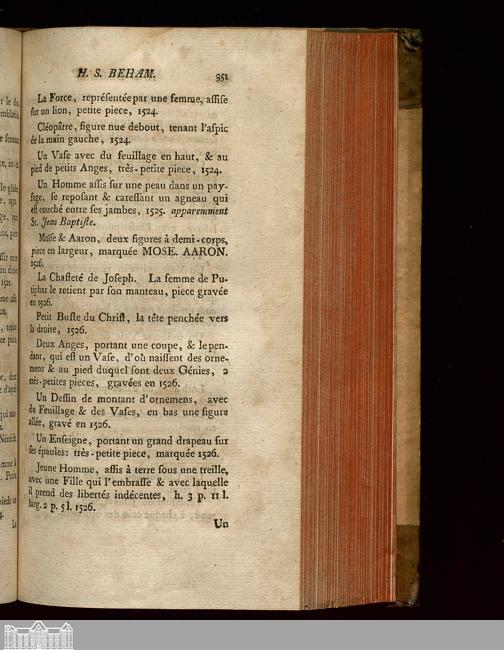 H. S. BEHAM. 351
La Force, représentée par une femme, assise
sur un lion, petite piece, 1524.
Cléopâtre, figure nue debout, tenant l'aspic
de la main gauche, 1524.
Un Vase avec du feuillage en haut, & au
pied de petits Anges, très-petite piece, 1524.
Un Homme assis sur une peau dans un pay-
sage, se reposant & caressant un agneau qui
est couché entre ses jambes, 1525. apparemment
St. Jean Baptiste.
Moïse & Aaron, deux figures à demi-corps,
piece en largeur, marquée MOSE. AARON.
1526.
La Chasteté de Joseph. La femme de Pu-
tiphar le retient par son manteau, piece gravée
en 1526.
Petit Buste du Christ, la tête penchée vers
la droite, 1526.
Deux Anges, portant une coupe, & le pen-
dant, qui est un Vase, d'où naissent des orne-
mens & au pied duquel sont deux Génies, 2
très-petites pieces, gravées en 1526.
Un Dessin de montant d'ornemens, avec
du Feuillage & des Vases, en bas une figure
ailée, gravé en 1526.
Un Enseigne, portant un grand drapeau sur
ses épaules: très-petite piece, marquée 1526.
Jeune Homme, assis à terre sous une treille,
avec une Fille qui l'embrasse & avec laquelle
il prend des libertés indécentes, h. 3 p. 11 l.
larg. 2 p. 5 l. 1526.
Un